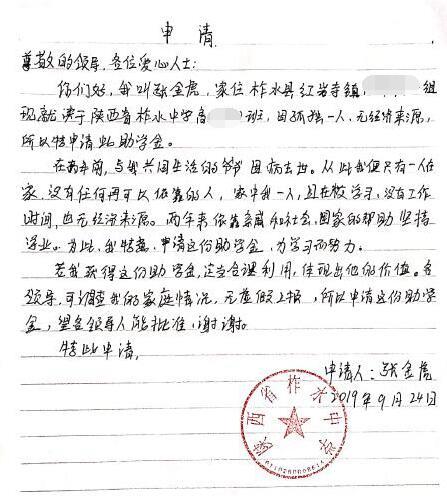 申请
尊敬的领导,各位爱心人士:
你们好,我叫张金虎,家位柞水县红岩寺镇 组
现就读于陕西省柞水中学高 班,因孤独一人,无经济来源,
所以特申请此助学金。
在两年前,与我共同生活的爷爷因病去世。从此我便只有一人在
家,没有任何再可以依靠的人,家中我一人,且在校学习,没有工作
时间,也无经济来源。两年来依靠亲戚和社会,国家的帮助坚持
学业。为此,我特意,申请这份助学金,为学习而努力。
若我获得这份助学金,还当合理利用,体现出他的价值。各
领导,可调查我的家庭情况,无虚假上报,所以申请这份助学
金,望各领导人能批准,谢谢。
特此申请,
申请人:张金虎
2019年9月24日
陕西省柞水中学